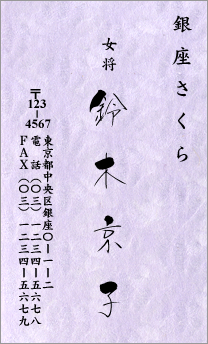 銀座さくら
女将
鈴木京子
〒123-4567
東京都中央区銀座〇ー一ー二
電話(〇三)一二三四ー五六七八
FAX(〇三)一二三四ー五六七九